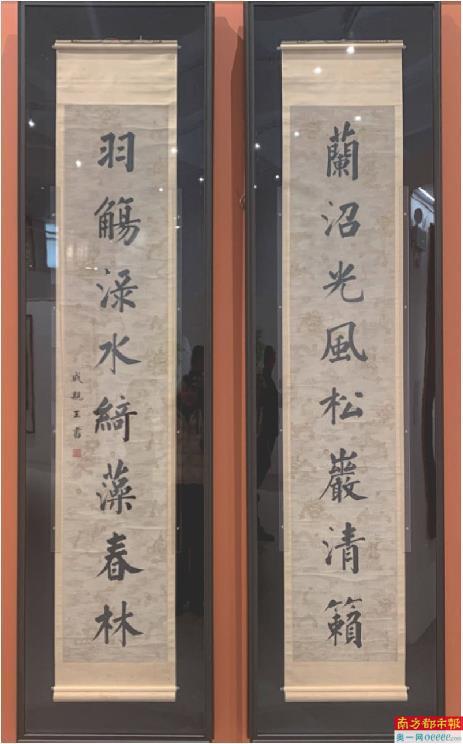 蘭沼光風松巖清籟
羽觴淥水綺藻春林
成親王書
南方都市報
奥一网oeeee.com